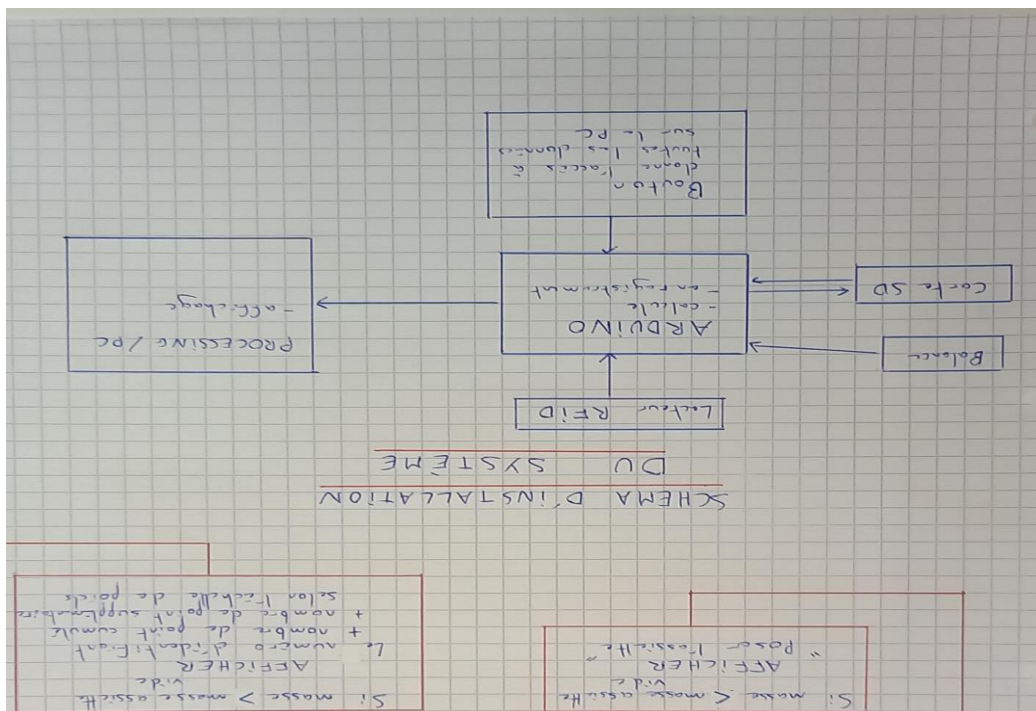 Si masse < masse assiette
vide
AFFICHER
"Poser l'assiette"
Si masse > masse assiette
vide
AFFICHER
Le numéro d'identifiant
+ nombre de point cumulé
+ nombre de point supplémentaire
selon l'échelle de poids
SCHEMA D'INSTALLATION
DU SYSTÈME
Lecteur RFiD
Balance
Carte SD
ARDUINO
-calcule
-enregistrement
PROCESSING / PC
-affichage
Bouton
donne l'accès à
toutes les données
sur le PC